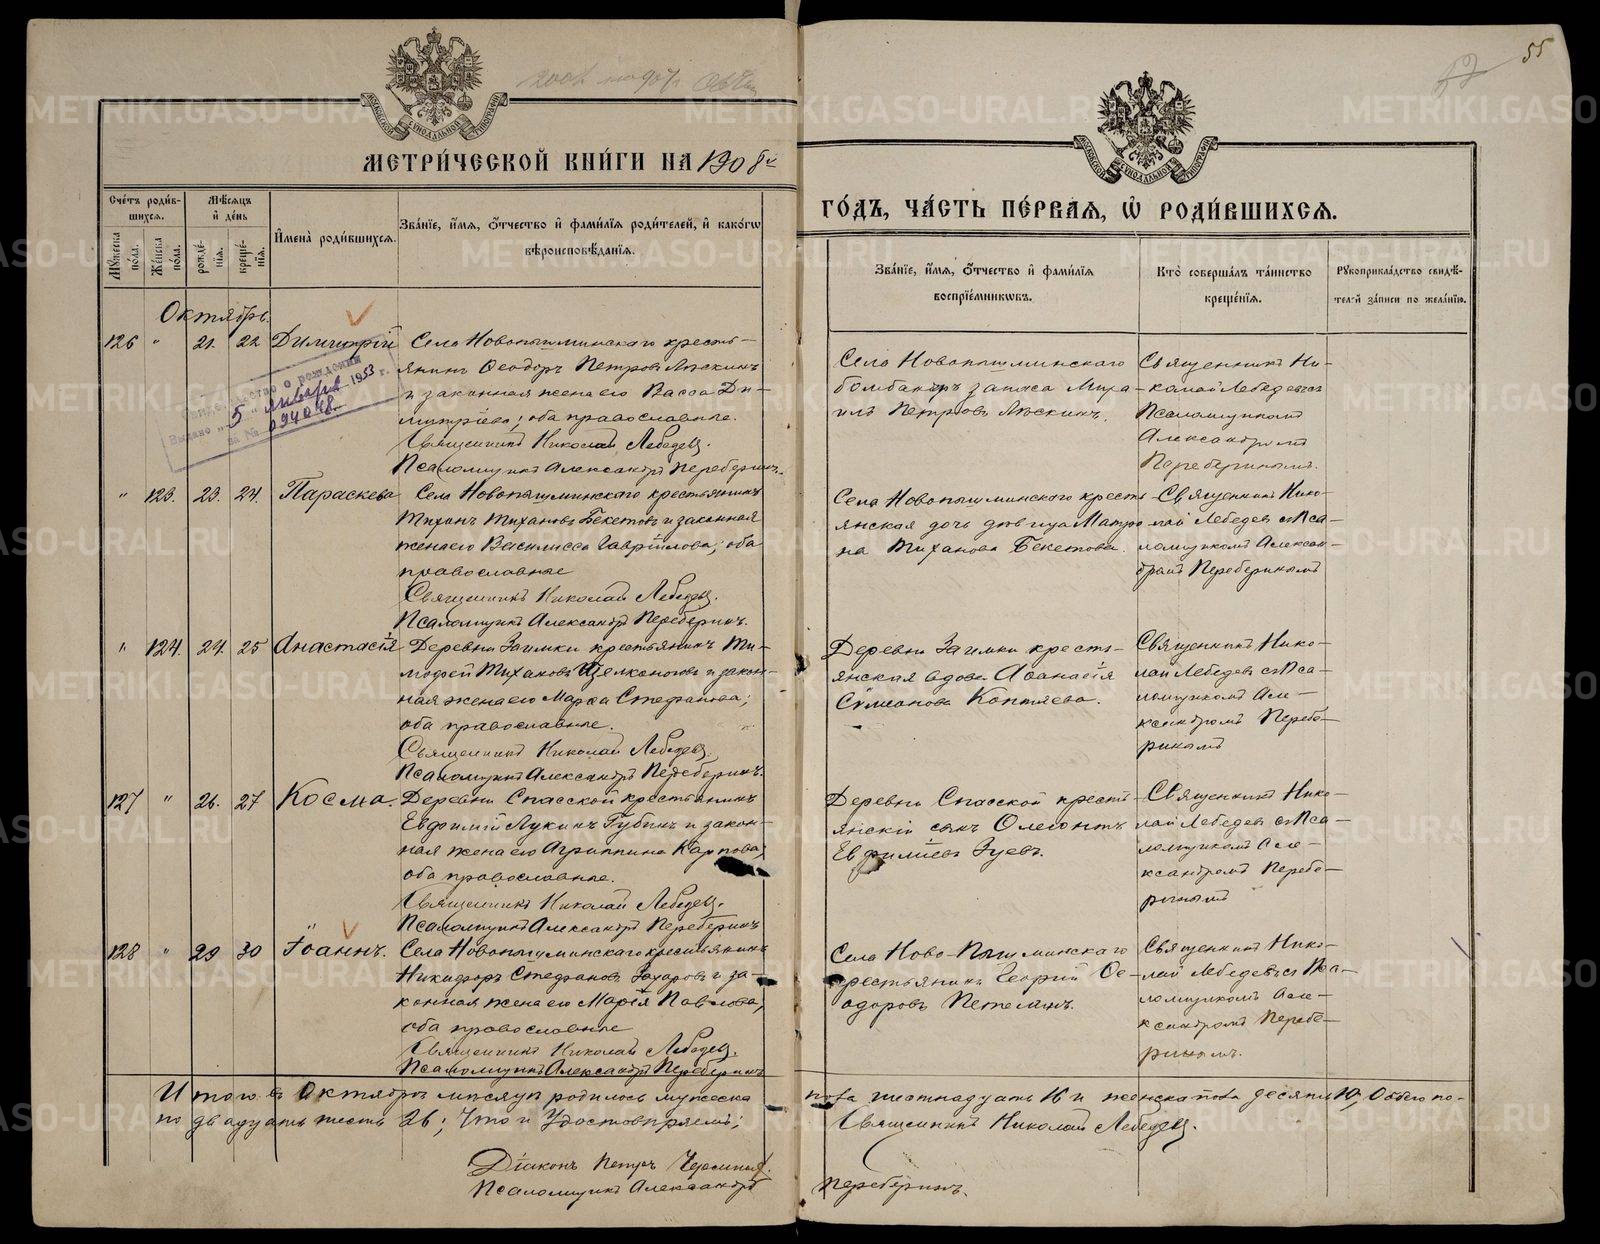 55
МЕТРИ́ЧЕСКОЙ КНИ́ГИ НА 1908й
ГО́ДЪ, ЧА́СТЬ ПЕ́РВАЯ, Ѽ РОДИ́ВШИХСЯ.
Сче́тъ роди́в-
шихся.
Мѣ́сяцъ
и҆ де́нь
И҆мена̀ роди́вшихся.
Зва́нїе, и҆́мя, ѻ҆́тчество и҆ фами́лїя роди́телей, и҆ како́гѡ
вѣроисповѣ́данїя.
Мꙋ́жеска по́ла.
Же́нска по́ла.
рожде́-
нїя.
креще́-
нїя.
Зва́нїе, и҆́мя, ѻ҆́тчество и҆ фами́лїя
воспрїе́мникѡвъ.
Кто̀ соверша́лъ та́инство
креще́нїя.
Рꙋкоприкла́дство свидѣ́-
телей за́писи по жела́нїю.
Октябрь.
126 " 21. 22 Димитрій
Села Новопышминскаго кресть-
янинъ Ѳеодоръ Петровъ Лескинъ
и законная жена его Васса Ди-
митріева; оба православные.
Священникъ Николай Лебедевъ.
Псаломщикъ Александръ Переберинъ.
Села Новопышминскаго
бомбандиръ запаса Миха-
илъ Петровъ Лескинъ.
Священникъ Ни-
колай Лебедевъ съ
Псаломщикомъ
Александромъ
Переберинымъ.
Свидетельство о рождении
Выдано „5" января 1953 г.
за № 094048
" 123. 23. 24. Параскева
Села Новопышминскаго крестьянинъ
Тихонъ Тихановъ Бекетовъ и законная
жена его Василисса Гаврійлова; оба
православные
Священникъ Николай Лебедевъ.
Псаломщикъ Александръ Переберинъ.
Села Новопышминскаго кресть-
янская дочь дѣвица Матро-
на Тиханова Бекетова.
Священникъ Нико-
лай Лебедев съ Пса-
ломщикомъ Алексан-
дромъ Переберинымъ
" 124. 24. 25 Анастасія
Деревни Заимки крестьянинъ Ти-
мофей Тихановъ Щелконоговъ и закон-
ная жена его Марѳа Стефанова;
оба православные.
Священникъ Николай Лебедевъ.
Псаломщикъ Александръ Переберинъ.
Деревни Заимки кресть-
янская вдова Аѳанасія
Сѵмеонова Коптяева.
Священникъ Нико-
лай Лебедев съ Пса-
ломщикомъ Але-
ксандромъ Перебе-
ринымъ
127 " 26. 27 Косма.
Деревни Спасской крестьянинъ
Евфимій Лукинъ Губинъ и закон-
ная жена его Агриппина Карпова;
оба православные.
Священникъ Николай Лебедевъ.
Псаломщикъ Александръ Переберинъ
Деревни Спасской кресть-
янскій сынъ Олегонтъ
Евфиміевъ Зуевъ.
Священникъ Нико-
лай Лебедев съ Пса-
ломщикомъ Але-
ксандромъ Перебе-
ринымъ
128 " 29 30 Іоаннъ.
Села Новопышминскаго крестьянинъ
Никифоръ Стефановъ Захаровъ и за-
конная жена его Марія Павлова;
оба православные
Священникъ Николай Лебедевъ.
Псаломщикъ Александръ Переберинъ
Села Ново-Пышминскаго
крестьянинъ Георгій Ѳе-
одоровъ Петелинъ.
Священникъ Нико-
лай Лебедевъ съ Пса-
ломщикомъ Але-
ксандромъ Перебе-
ринымъ.
Итого въ Октябрѣ мѣсяцѣ родилось мужеска пола шестнадцать 16 и женска пола десять 10, Обоего по-
ло двадцать шесть 26; Что и Удостовѣряемъ; Священникъ Николай Лебедевъ.
Діаконъ Петръ
Псаломщикъ Александръ Переберинъ.
METRIKI.GASO-URAL.RU